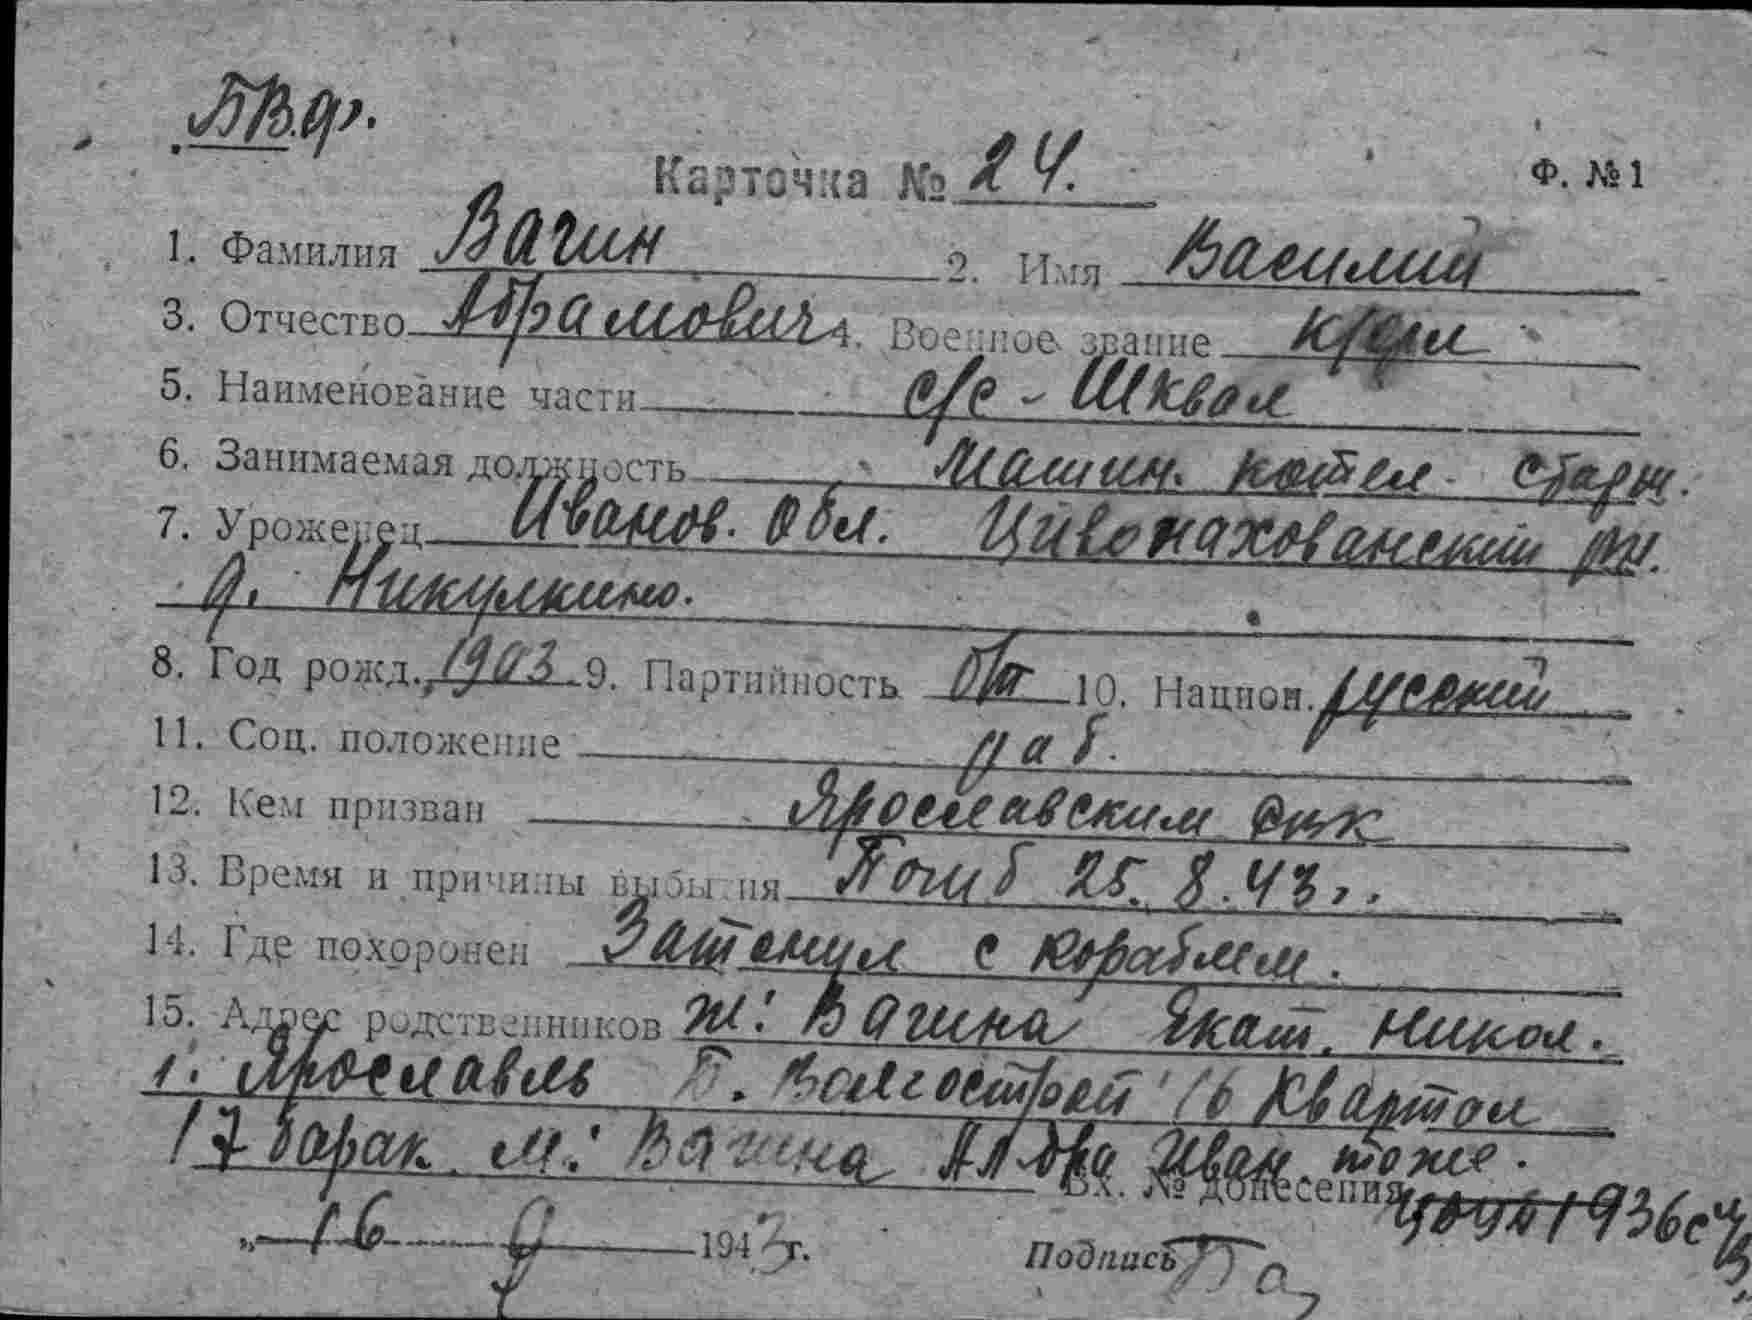 БВФ.
Карточка № 24.
Ф. № 1
1. Фамилия Вагин 2. Имя Василий
3. Отчество Абрамович 4. Военное звание к/фл
5. Наименование части с/с - Шквал
6. Занимаемая должность Машин. котел. старш.
7. Уроженец Иванов. Обл. рн.
д. Никулкино.
8. Год рожд. 1903 9. Партийность б/п 10. Национ. русский
11. Соц. положение раб.
12. Кем призван Ярославским
13. Время и причины выбытия Погиб 25. 8. 43 г.
14. Где похоронен Затонул с кораблем.
15. Адрес родственников ж: Вагина Екат. Никол.
г. Ярославль П. Волгострой 16 Квартал
17 барак. м: Вагина Ал-дра Иван. тоже.
Вх. № донесения 1936сч
„ 16 9 1943 г.
Подпись